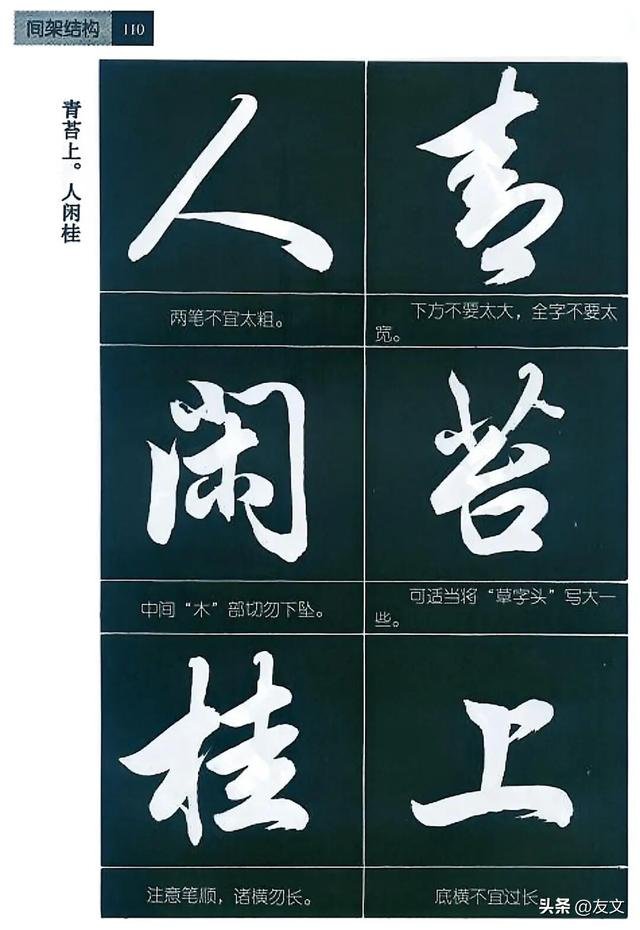 间架结构 110
青苔上。人闲桂
青
下方不要太大，全字不要太
宽。
苔
可适当将“草字头”写大一
些。
上
底横不宜过长
人
两笔不宜太粗。
闲
中间“木”部切勿下坠。
桂
注意笔顺，诸横勿长。
头条@友文